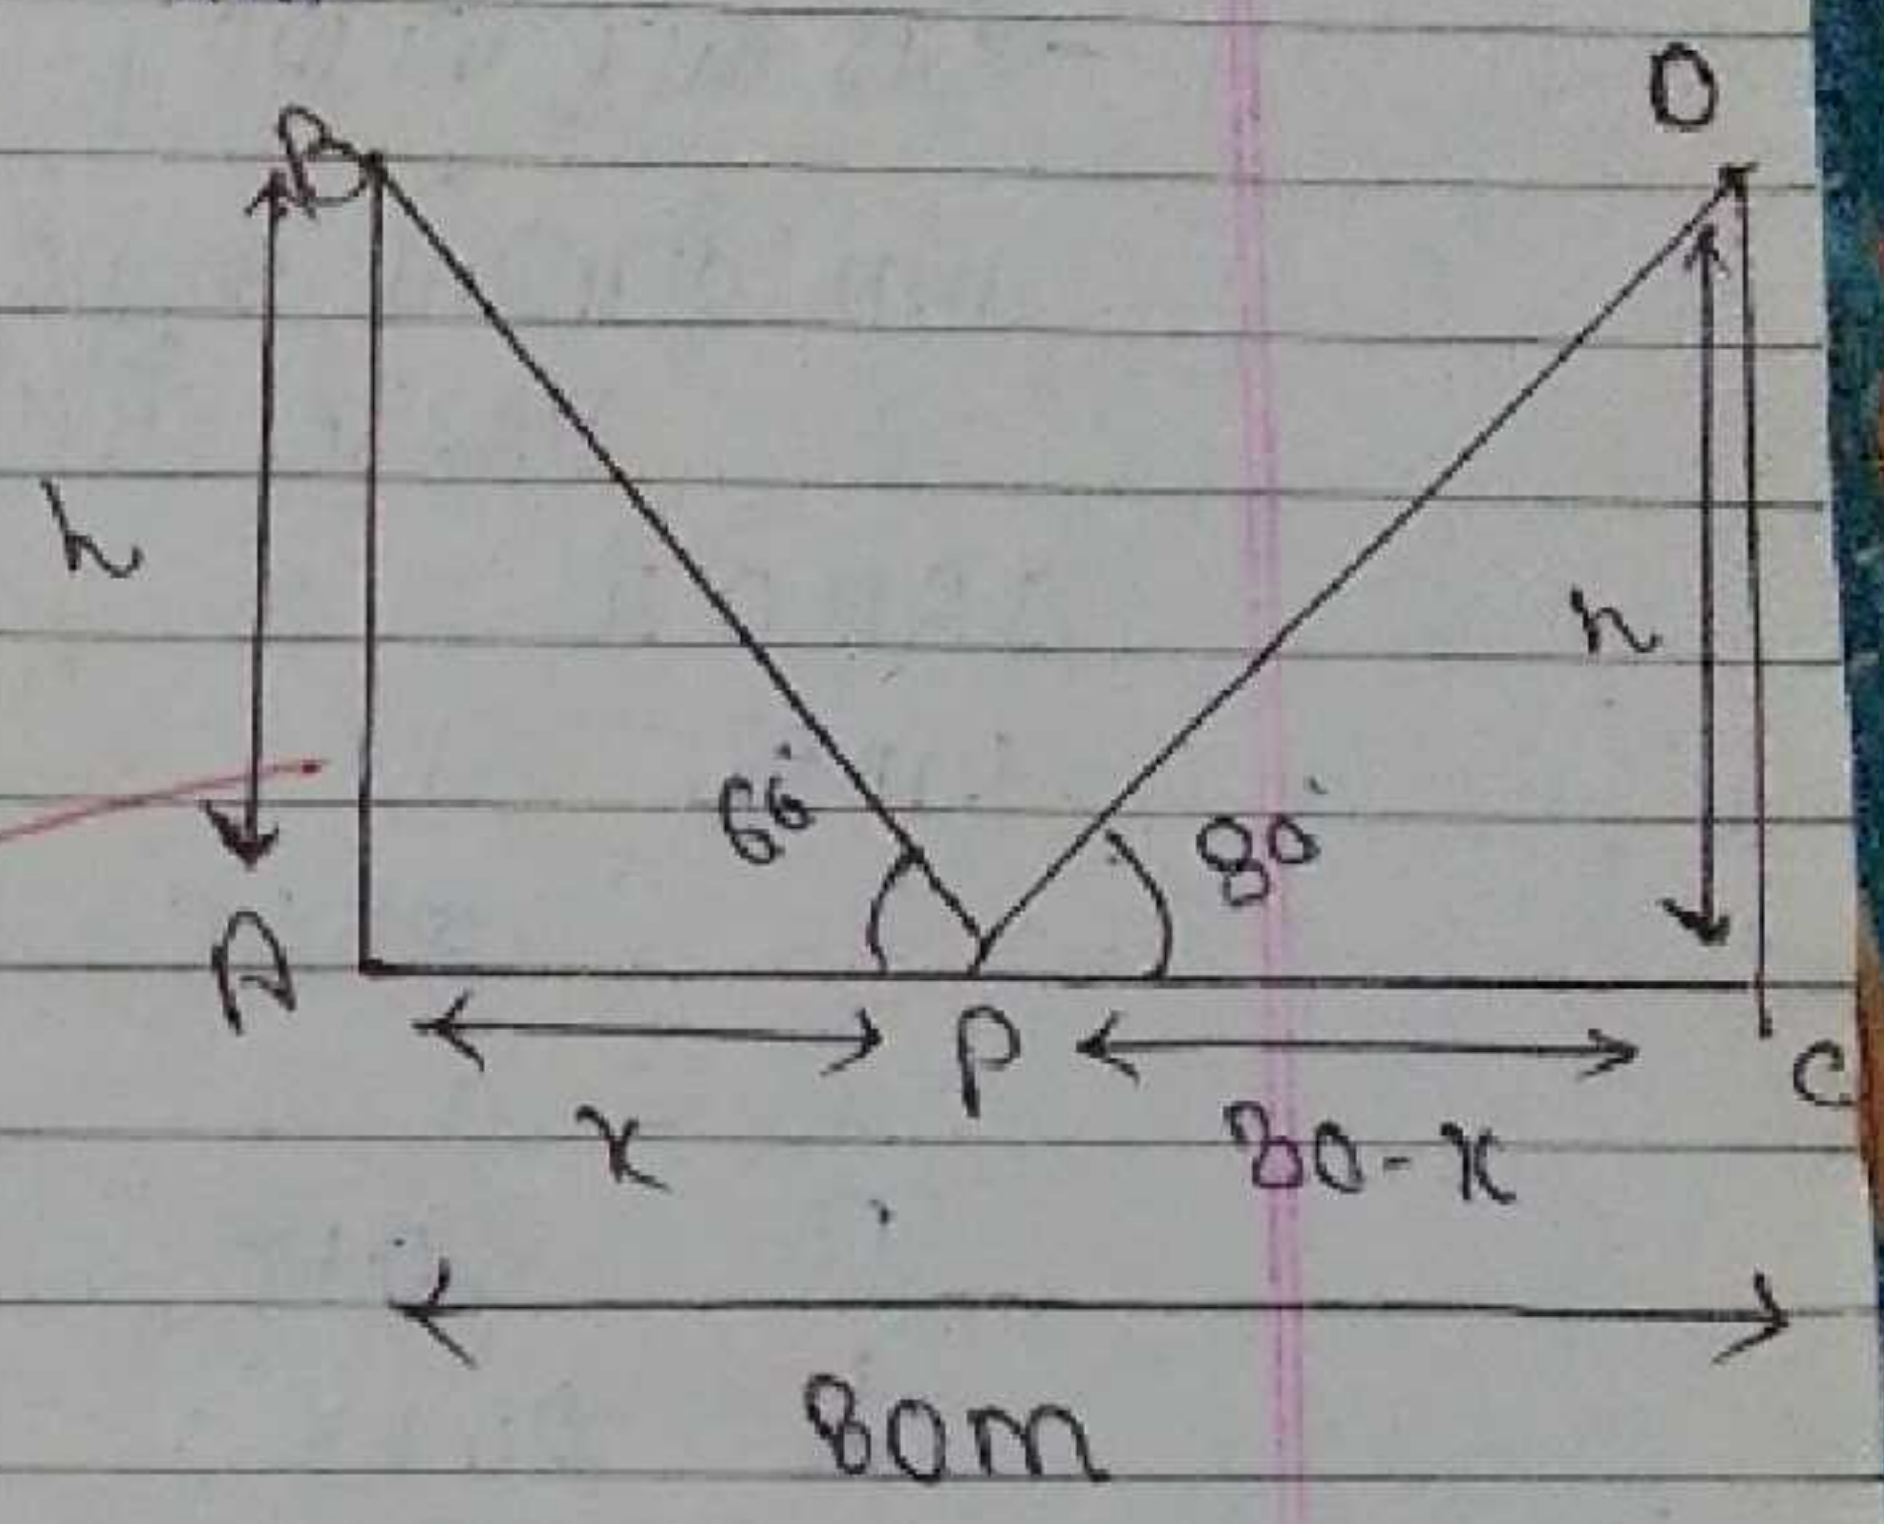 B
D
h
h
60°
30°
A
P
C
x
80-x
80m